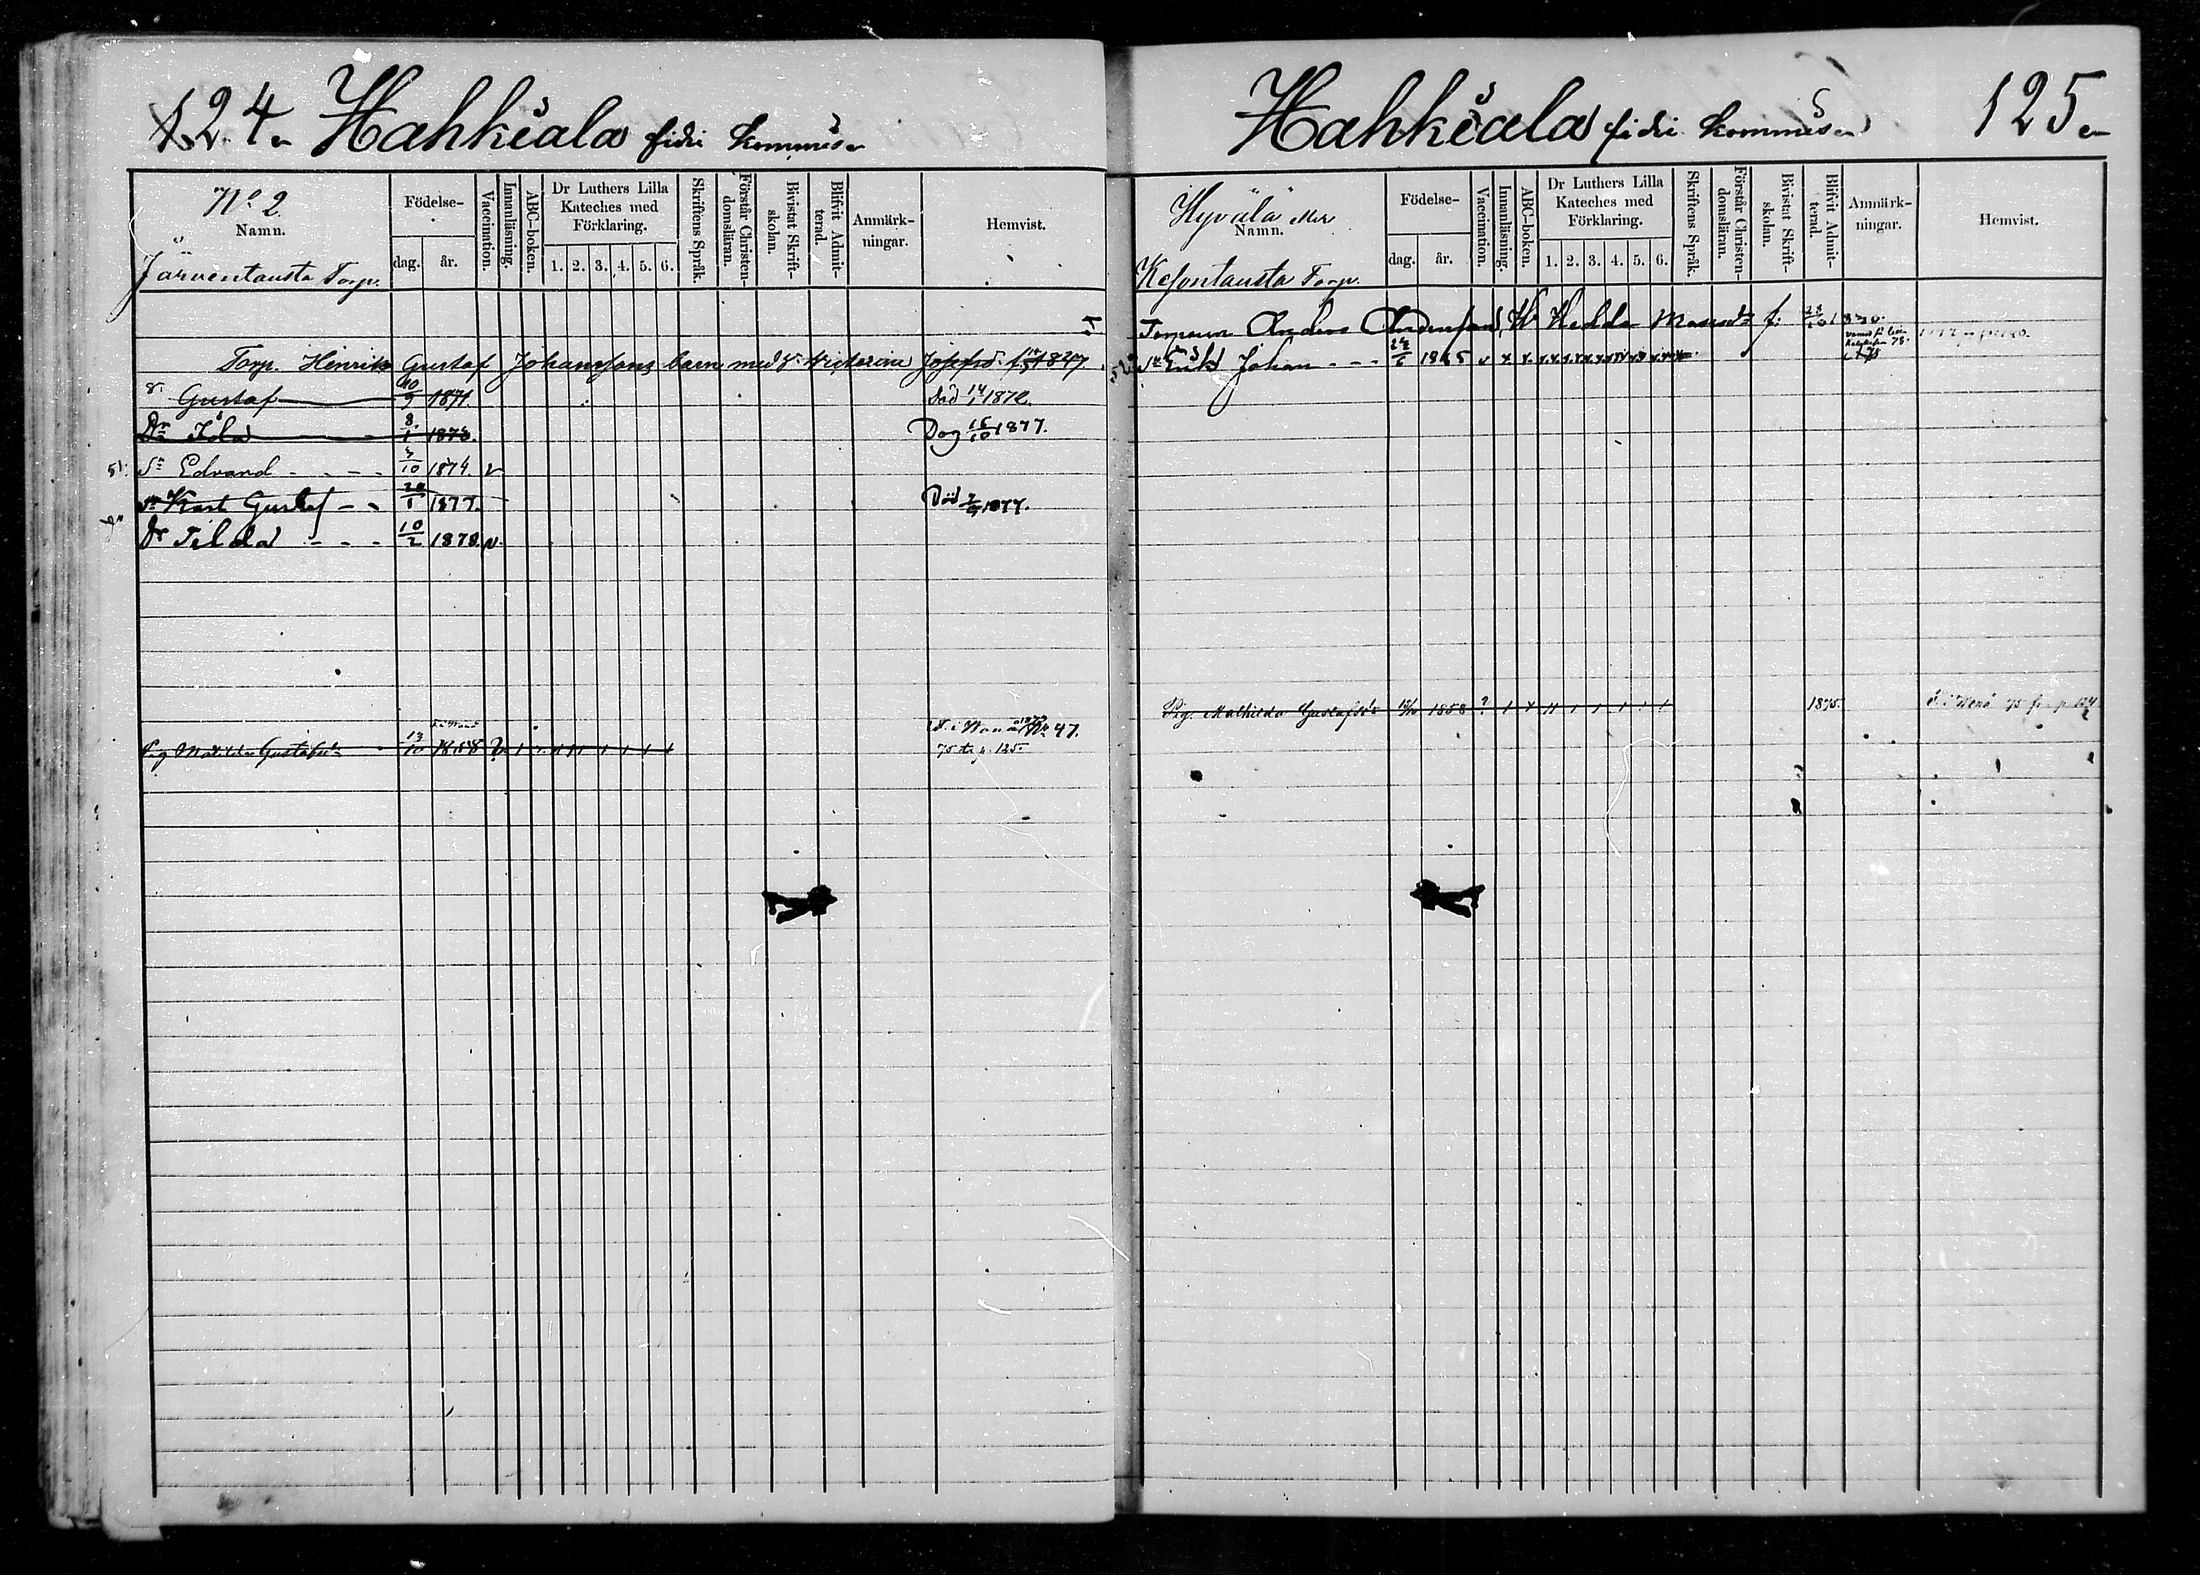 124
Hahkiala fidei kommiss
No 2.
Namn.
Järventausta Torp.
Födelse-
dag.
år.
Vaccination.
Innanläsning.
ABC-boken.
Dr Luthers Lilla
Kateches med
Förklaring.
1. 2. 3. 4. 5. 6.
Skriftens Språk.
Förstår Christen-
domsläran.
Bivistat Skrift-
skolan.
Blifvit Admit-
terad.
Anmärk-
ningar.
Hemvist.
Torp. Henrik Gustaf Johanssons barn med Victorina Josefsd.
Gustaf 1871. Död 14/1 1872.
Dr Ida 8/1 1873. Dog 15/10 1877.
51. Sn Edvard 3/10 1874. v
Sn Karl Gustaf 1877. Död 1877.
Dr Tilda 10/2 1878. v.
Pig Matilda Gustafsd 13/10 1858 47.
75 t. p. 125
Hahkiala fidei kommiss
125
Hyvälä eller
Namn.
Kesontausta Torp.
Födelse-
dag.
år.
Vaccination.
Innanläsning.
ABC-boken.
Dr Luthers Lilla
Kateches med
Förklaring.
1. 2. 3. 4. 5. 6.
Skriftens Språk.
Förstår Christen-
domsläran.
Bivistat Skrift-
skolan.
Blifvit Admit-
terad.
Anmärk-
ningar.
Hemvist.
Anders Andersson H. Hedda Matsd f.
Sn Erik Johan 1865 v
Pig. Mathilda Gustafsd 13/10 1858 ? 1875. 75 fr. p. 124